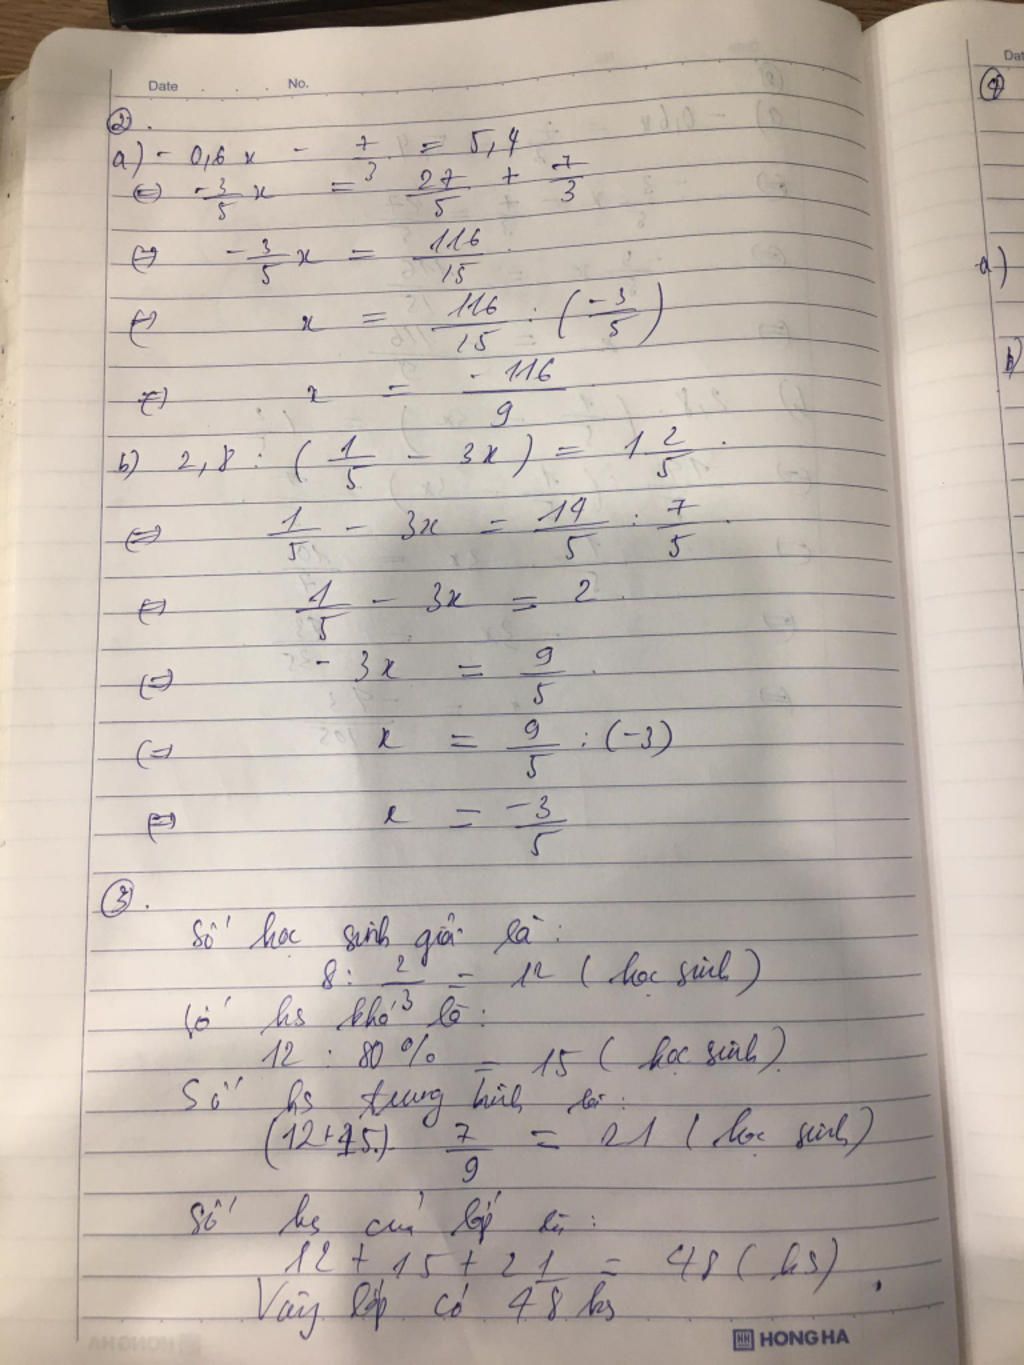 Date No.
②.
a) - 0,6x - 7/3 = 5,4
⇔ -3/5 x = 27/5 + 7/3
⇔ -3/5 x = 116/15
⇔ x = 116/15 : (-3/5)
⇔ x = -116/9
b) 2,8 : (1/5 - 3x) = 1 2/5.
⇔ 1/5 - 3x = 14/5 : 7/5.
⇔ 1/5 - 3x = 2.
⇔ - 3x = 9/5.
⇔ x = 9/5 : (-3)
⇔ x = -3/5
③.
Số học sinh giỏi là :
8 : 2/3 = 12 ( học sinh )
Số hs khá là :
12 : 80% = 15 ( học sinh )
Số hs trung bình là :
(12+15). 7/9 = 21 ( học sinh )
Số hs của lớp là :
12 + 15 + 21 = 48 ( hs )
Vậy lớp có 48 hs
HONG HA
Dat
④
a)
b)